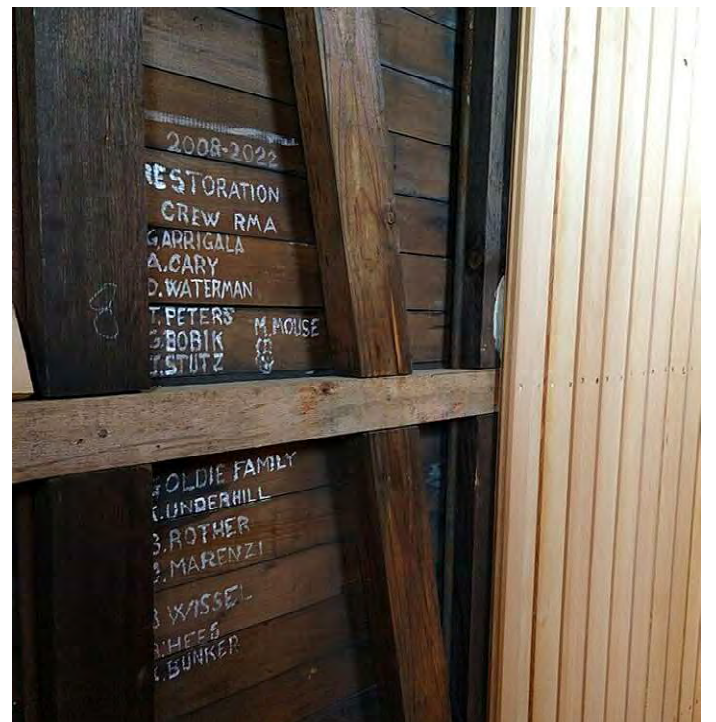 2008-2022
RESTORATION
CREW RMA
G.ARRIGALA
A.CARY
D.WATERMAN
T.PETERS
M.MOUSE
G.BOBIK
T.STUTZ
GOLDIE FAMILY
UNDERHILL
ROTHER
MARENZI
WISSEL
HEES
BUNKER
8